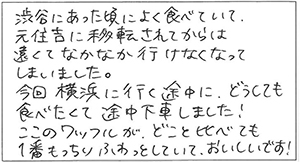 渋谷にあった頃によく食べていて、
元住吉に移転されてからは
遠くてなかなか行けなくなって
しまいました。
今回横浜に行く途中に、どうしても
食べたくて途中下車しました!
ここのワッフルが、どこと比べても
1番もっちりふわっとしていて、おいしいです!